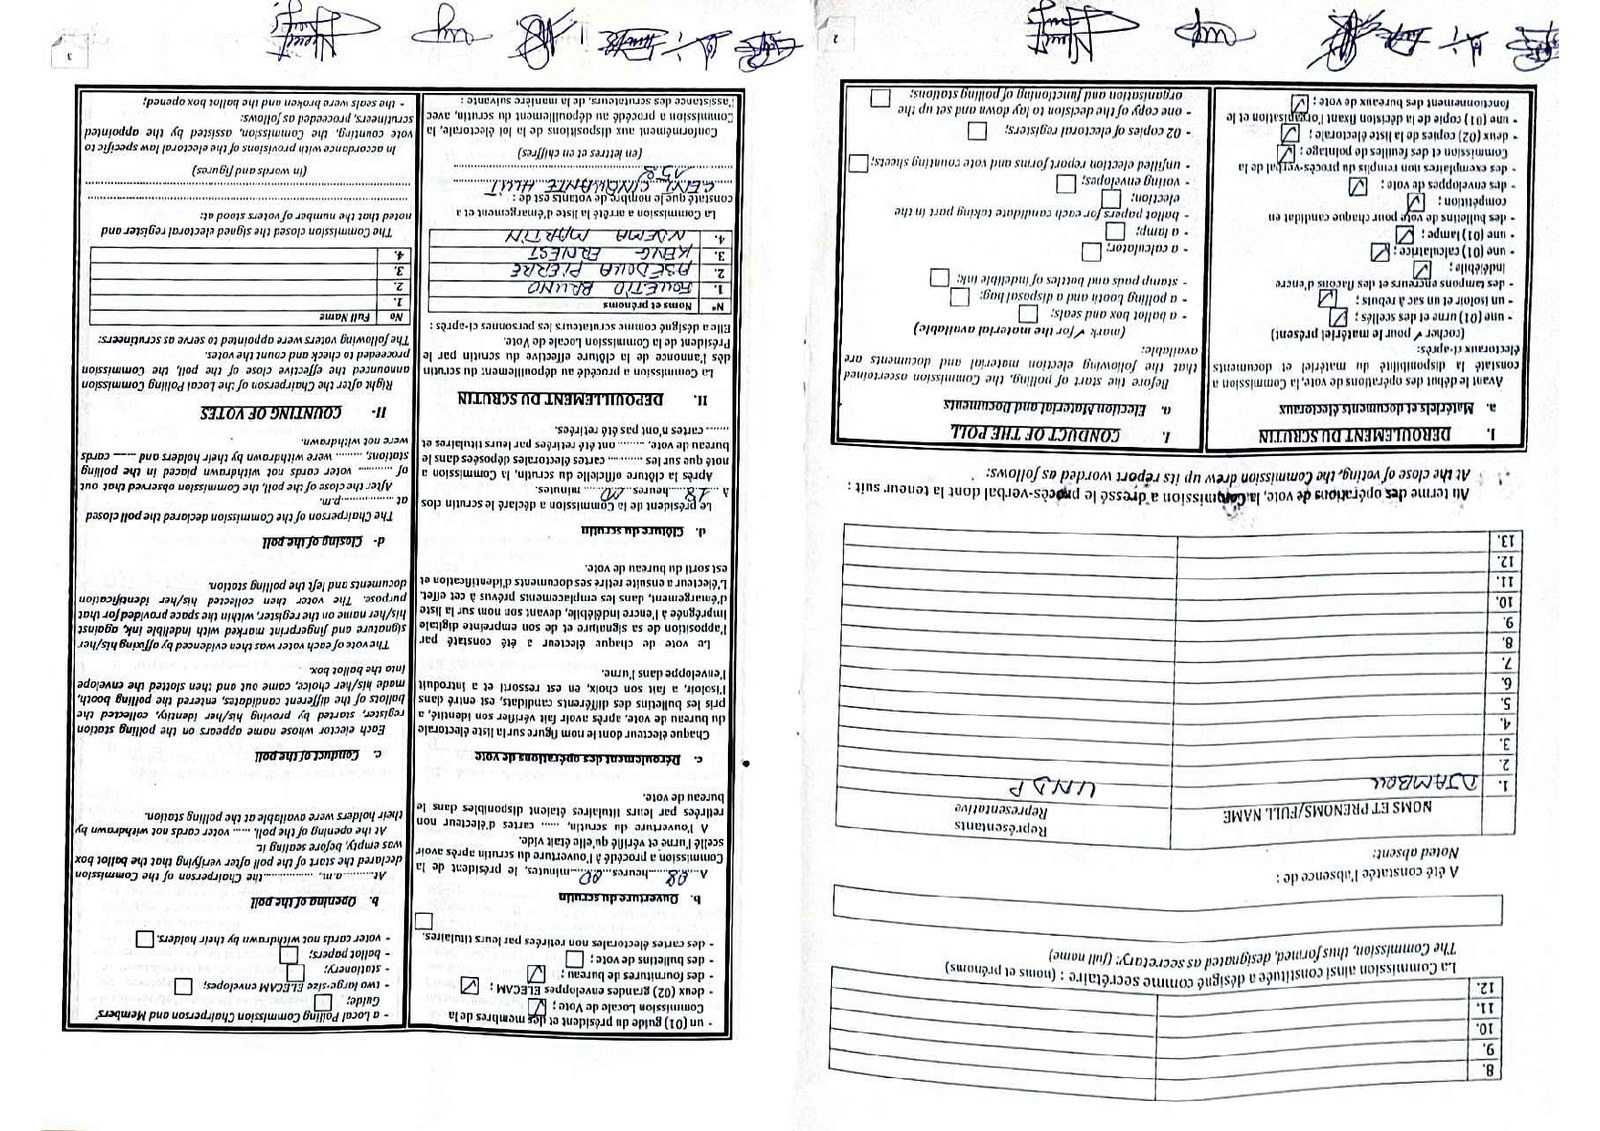 8.
9.
10.
11.
12.
La Commission ainsi constituée a désigné comme secrétaire : (noms et prénoms)
The Commission, thus formed, designated as secretary: (full name)
A été constatée l'absence de :
Noted absent:
NOMS ET PRENOMS/FULL NAME
Représentants
Representative
1. DJAMBOU UNDP
2.
3.
4.
5.
6.
7.
8.
9.
10.
11.
12.
13.
Au terme des opérations de vote, la Commission a dressé le procès-verbal dont la teneur suit :
At the close of voting, the Commission drew up its report worded as follows:
I. DEROULEMENT DU SCRUTIN
a. Matériels et documents électoraux
Avant le début des opérations de vote, la Commission a
constaté la disponibilité du matériel et documents
électoraux ci-après:
(cocher ✓ pour le matériel présent)
- une (01) urne et des scellés ; ☑
- un isoloir et un sac à rebuts ; ☑
- des tampons encreurs et des flacons d'encre
indélébile ; ☑
- une (01) calculatrice ; ☑
- une (01) lampe ; ☑
- des bulletins de vote pour chaque candidat en
compétition ; ☑
- des enveloppes de vote ; ☑
- des exemplaires non remplis du procès-verbal de la
Commission et des feuilles de pointage ; ☑
- deux (02) copies de la liste électorale ; ☑
- une (01) copie de la décision fixant l'organisation et le
fonctionnement des bureaux de vote ; ☑
I. CONDUCT OF THE POLL
a. Election Material and Documents
Before the start of polling, the Commission ascertained
that the following election material and documents are
available:
(mark ✓ for the material available)
- a ballot box and seals; ☐
- a polling booth and a disposal bag; ☐
- stamp pads and bottles of indelible ink; ☐
- a calculator; ☐
- a lamp; ☐
- ballot papers for each candidate taking part in the
election; ☐
- voting envelopes; ☐
- unfilled election report forms and vote counting sheets; ☐
- 02 copies of electoral registers; ☐
- one copy of the decision to lay down and set up the
organisation and functioning of polling stations; ☐
2
- un (01) guide du président et des membres de la
Commission Locale de Vote ; ☑
- deux (02) grandes enveloppes ELECAM ; ☑
- des fournitures de bureau ; ☑
- des bulletins de vote ; ☐
- des cartes électorales non retirées par leurs titulaires. ☐
b. Ouverture du scrutin
A 08 heures 00 minutes, le président de la
Commission a procédé à l'ouverture du scrutin après avoir
scellé l'urne et vérifié qu'elle était vide.
A l'ouverture du scrutin, ...... cartes d'électeur non
retirées par leurs titulaires étaient disponibles dans le
bureau de vote.
c. Déroulement des opérations de vote
Chaque électeur dont le nom figure sur la liste électorale
du bureau de vote, après avoir fait vérifier son identité, a
pris les bulletins des différents candidats, est entré dans
l'isoloir, a fait son choix, en est ressorti et a introduit
l'enveloppe dans l'urne.
Le vote de chaque électeur a été constaté par
l'apposition de sa signature et de son empreinte digitale
imprégnée à l'encre indélébile, devant son nom sur la liste
d'émargement, dans les emplacements prévus à cet effet.
L'électeur a ensuite retiré ses documents d'identification et
est sorti du bureau de vote.
d. Clôture du scrutin
Le président de la Commission a déclaré le scrutin clos
à 18 heures 00 minutes.
Après la clôture officielle du scrutin, la Commission a
noté que sur les ......... cartes électorales déposées dans le
bureau de vote, ........ ont été retirées par leurs titulaires et
...... cartes n'ont pas été retirées.
II. DEPOUILLEMENT DU SCRUTIN
La Commission a procédé au dépouillement du scrutin
dès l'annonce de la clôture effective du scrutin par le
Président de la Commission Locale de Vote.
Elle a désigné comme scrutateurs les personnes ci-après :
N° Noms et prénoms
1. BRUNO
2. PIERRE
3. KENG ERNEST
4. NSEMA MARTIN
La Commission a arrêté la liste d'émargement et a
constaté que le nombre de votants est de :
CENT CINQUANTE HUIT
158
(en lettres et en chiffres)
Conformément aux dispositions de la loi électorale, la
Commission a procédé au dépouillement du scrutin, avec
l'assistance des scrutateurs, de la manière suivante :
- a Local Polling Commission Chairperson and Members'
Guide; ☐
- two large-size ELECAM envelopes; ☐
- stationery; ☐
- ballot papers; ☐
- voter cards not withdrawn by their holders. ☐
b. Opening of the poll
At..........a.m., ..............the Chairperson of the Commission
declared the start of the poll after verifying that the ballot box
was empty, before sealing it.
At the opening of the poll, ...... voter cards not withdrawn by
their holders were available at the polling station.
c. Conduct of the poll
Each elector whose name appears on the polling station
register, started by proving his/her identity, collected the
ballots of the different candidates, entered the polling booth,
made his/her choice, came out and then slotted the envelope
into the ballot box.
The vote of each voter was then evidenced by affixing his/her
signature and fingerprint marked with indelible ink, against
his/her name on the register, within the space provided for that
purpose. The voter then collected his/her identification
documents and left the polling station.
d- Closing of the poll
The Chairperson of the Commission declared the poll closed
at ................p.m.
After the close of the poll, the Commission observed that out
of .......... voter cards not withdrawn placed in the polling
stations, ........ were withdrawn by their holders and ------ cards
were not withdrawn.
II- COUNTING OF VOTES
Right after the Chairperson of the Local Polling Commission
announced the effective close of the poll, the Commission
proceeded to check and count the votes.
The following voters were appointed to serve as scrutineers:
No Full Name
1.
2.
3.
4.
The Commission closed the signed electoral register and
noted that the number of voters stood at:
(in words and figures)
In accordance with provisions of the electoral law specific to
vote counting, the Commission, assisted by the appointed
scrutineers, proceeded as follows:
- the seals were broken and the ballot box opened;
3